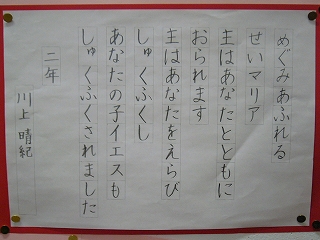 めぐみあふれる
せいマリア
主はあなたとともに
おられます
主はあなたをえらび
しゅくふくし
あなたの子イエスも
しゅくふくされました
二年
川上晴紀